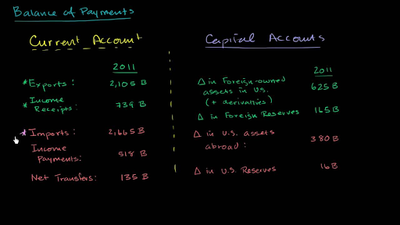 Balance of Payments
Current Account
2011
* Exports: 2,105 B
* Income Receipts: 739 B
* Imports: 2,665 B
Income Payments: 518 B
Net Transfers: 135 B
Capital Accounts
2011
Δ in Foreign-owned
assets in U.S. 625 B
(+ derivatives)
Δ in Foreign Reserves 165 B
Δ in U.S. assets
abroad: 380 B
Δ in U.S. Reserves 16 B